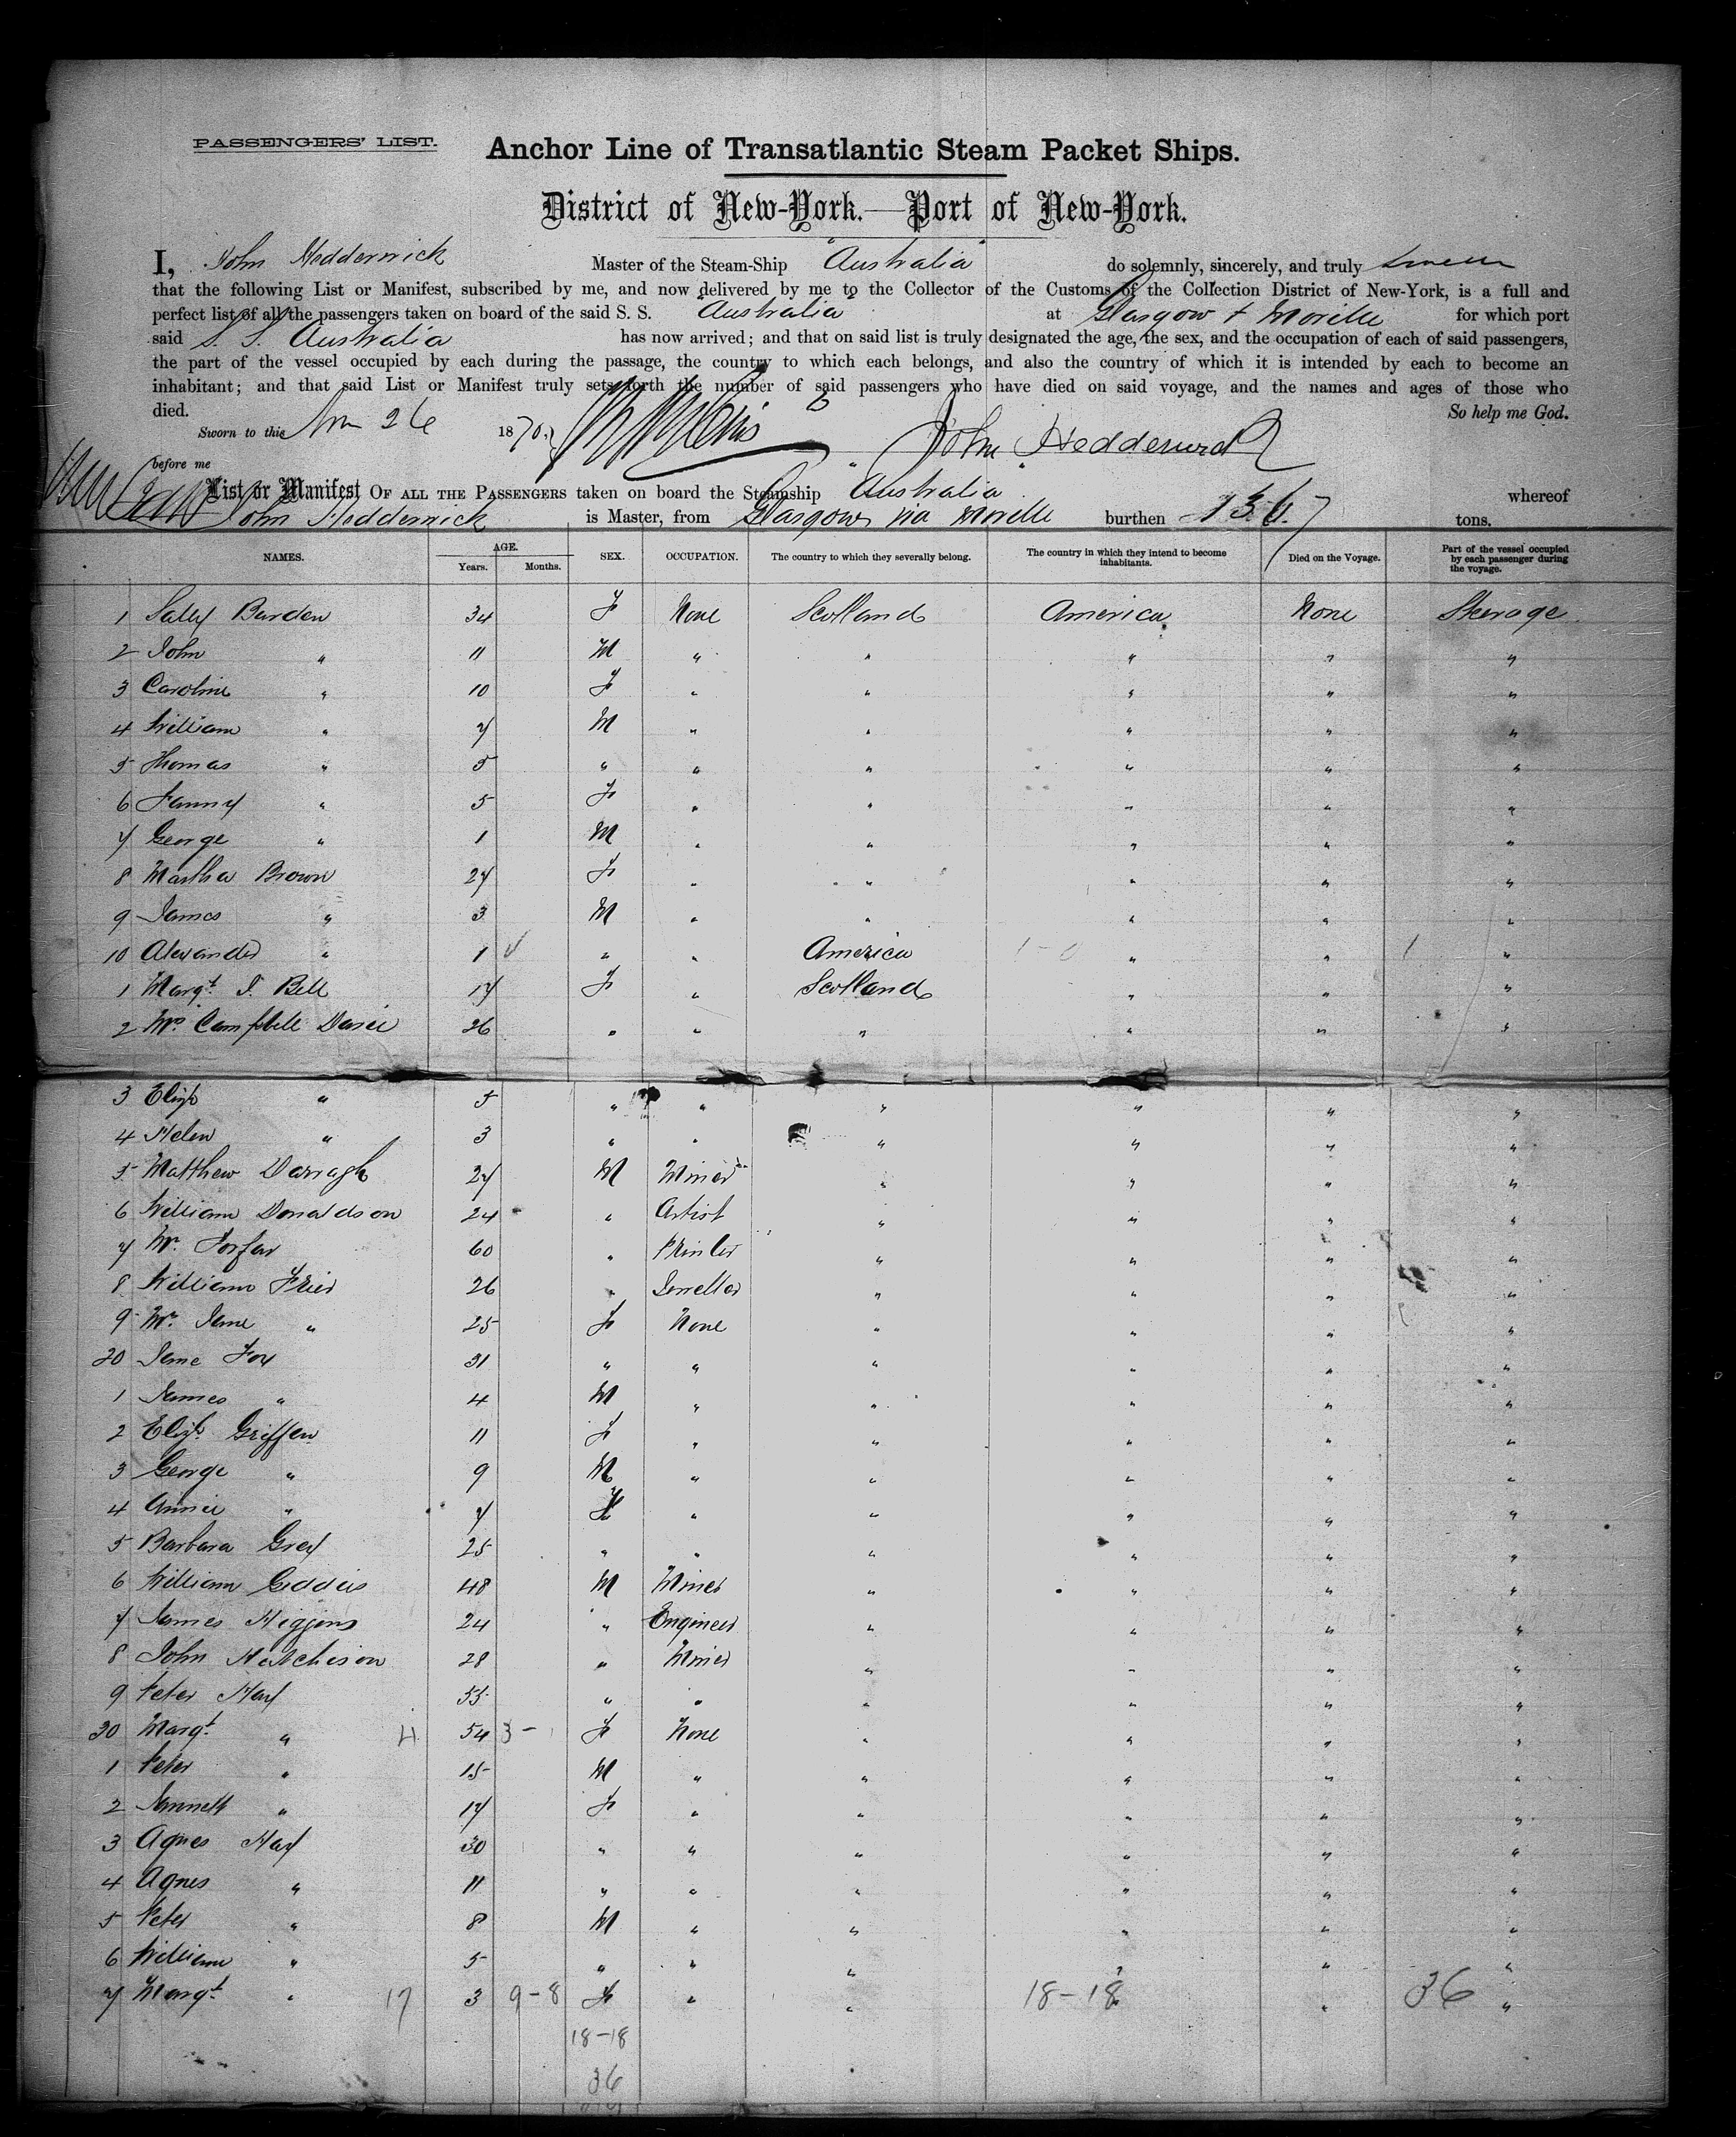 PASSENGERS' LIST.
Anchor Line of Transatlantic Steam Packet Ships.
District of New-York.—Port of New-York.
I, John Hedderwick Master of the Steam-Ship "Australia" do solemnly, sincerely, and truly swear
that the following List or Manifest, subscribed by me, and now delivered by me to the Collector of the Customs of the Collection District of New-York, is a full and
perfect list of all the passengers taken on board of the said S. S. "Australia" at Glasgow + Moville for which port
said S. S. Australia has now arrived; and that on said list is truly designated the age, the sex, and the occupation of each of said passengers,
the part of the vessel occupied by each during the passage, the country to which each belongs, and also the country of which it is intended by each to become an
inhabitant; and that said List or Manifest truly sets forth the number of said passengers who have died on said voyage, and the names and ages of those who
died. So help me God.
Sworn to this Nov 26 1870. John Hedderwick
before me
List or Manifest OF ALL THE PASSENGERS taken on board the Steamship "Australia" whereof
John Hedderwick is Master, from Glasgow via Moville burthen tons.
NAMES. AGE. Years. Months. SEX. OCCUPATION. The country to which they severally belong. The country in which they intend to become inhabitants. Died on the Voyage. Part of the vessel occupied by each passenger during the voyage.
1 Sally Burden 34 F None Scotland America None Steerage
2 John " 11 M " " " " "
3 Caroline " 10 F " " " " "
4 William " 7 M " " " " "
5 Thomas " 5 " " " " " "
6 Fanny " 5 F " " " " "
7 George " 1 M " " " " "
8 Martha Brown 27 F " " " " "
9 James " 3 M " " " " "
10 Alexander " 1 " " America 1-0 " " 1 "
1 Margt. J. Bell 17 F " Scotland " " "
2 Mrs. Campbell 26 " " " " " "
3 Eliz " 5 " " " " " "
4 Helen " 3 " " " " " "
5 Matthew Darragh 27 M Miner " " " "
6 William Donaldson 24 " Artist " " " "
7 Mr. Forfar 60 " Printer " " " "
8 William Frier 26 " Jeweller " " " "
9 Mrs. Jane " 25 F None " " " "
20 Jane Fox 31 " " " " " "
1 James " 4 M " " " " "
2 Eliz. Griffen 11 F " " " " "
3 George " 9 M " " " " "
4 Annie " 7 F " " " " "
5 Barbara Grey 25 " " " " " "
6 William Geddes 48 M Miner " " " "
7 James Higgins 24 " Engineer " " " "
8 John Hutchison 28 " Miner " " " "
9 Peter Hay 55 " " " " " "
30 Margt. " 4 54 3- F None " " " "
1 Peter " 15 M " " " " "
2 Jannett " 17 F " " " " "
3 Agnes Hay 30 " " " " " "
4 Agnes " 11 " " " " " "
5 Peter " 8 M " " " " "
6 William " 5 " " " " " "
7 Margt. " 17 3 9-8 F " " 18-18 " " 36 "
18-18
36